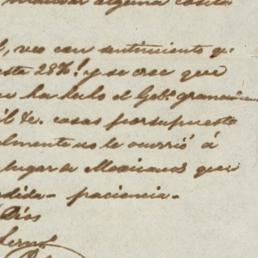 alguna cosita
, veo con sentimiento qe
este 28%! y se cree que
ha hecho el Gobo.
&c. cosas por supuesto
almente no le ocurrió á
lugar de Mexicanos que
paciencia.
Dios